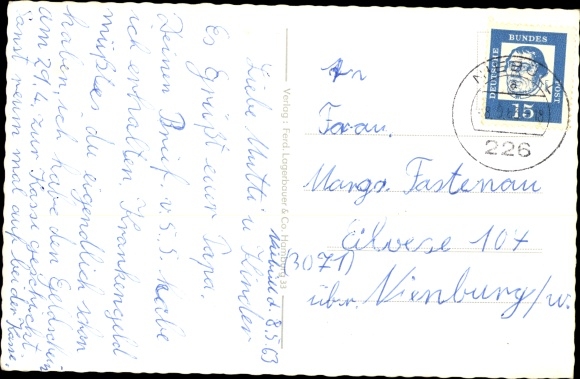 Niebüll d. 8.5.63
Liebe Mutti u Kinder
Es Grüßt euer Papa.
Deinen Brief. v. 5.5. habe
ich erhalten. Krankengeld
müßtes du eigendlich schon
haben ich habe den Geldschein
am 29.4. zur Kasse geschickt.
mal auf bei der Kasse.
Verlag: Ferd. Lagerbauer & Co. Hamburg 33
DEUTSCHE
BUNDES
POST
15
226
An
Frau.
Margr. Fastenau
Eilvese 107
(3071)
über. Nienburg/w.